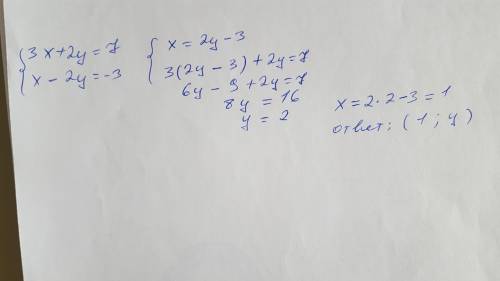 3x+2y=7
x-2y=-3
x=2y-3
3(2y-3)+2y=7
6y-9+2y=7
8y=16
y=2
x=2·2-3=1
ответ: (1; y)